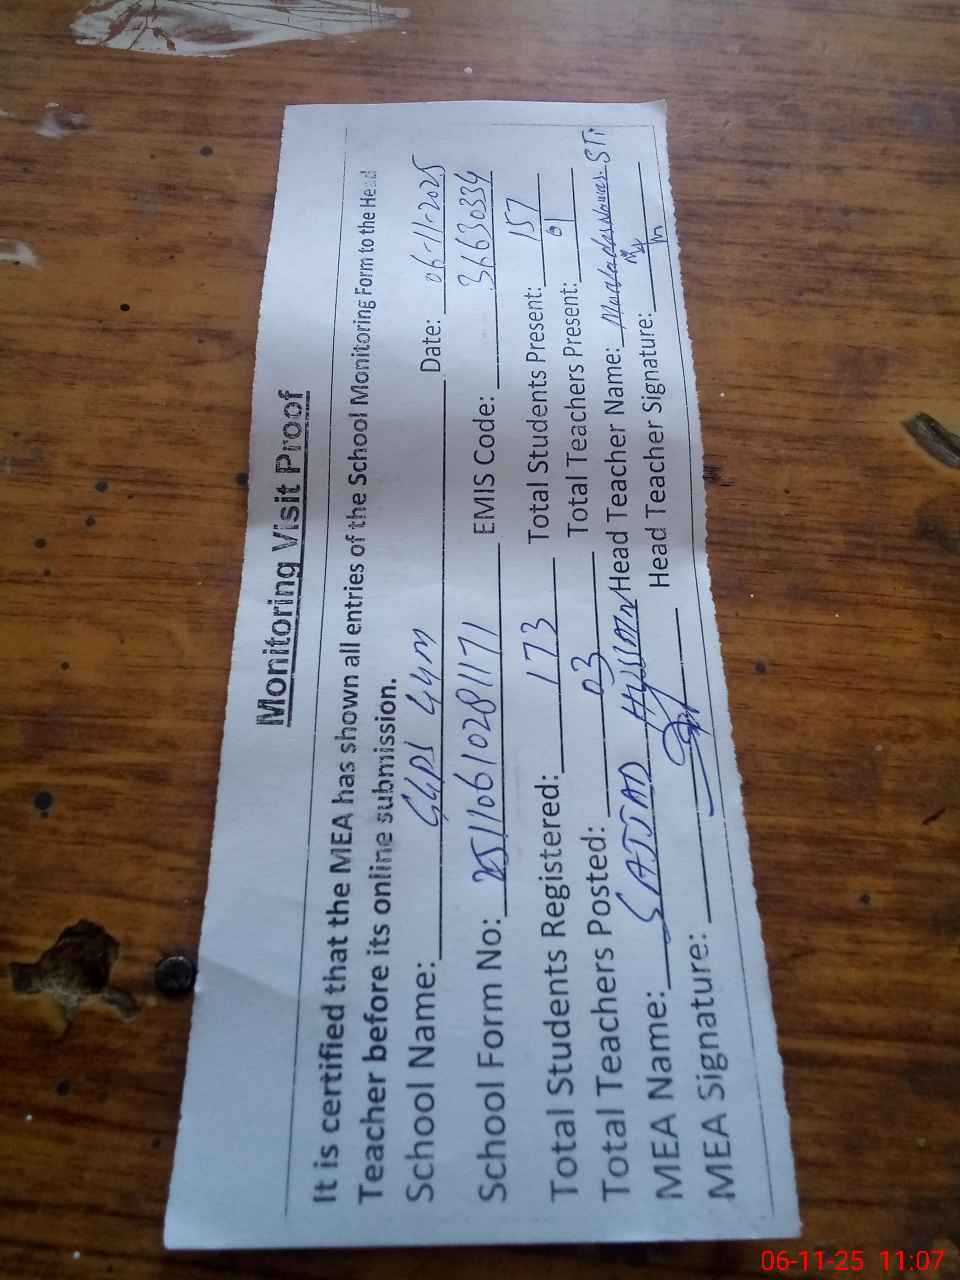 Monitoring Visit Proof
It is certified that the MEA has shown all entries of the School Monitoring Form to the Head
Teacher before its online submission.
School Name: Date: 06-11-2025
School Form No: 25110610281171 EMIS Code: 36630334
Total Students Registered: 173 Total Students Present: 157
Total Teachers Posted: 03 Total Teachers Present: 01
MEA Name: SAJJAD Hussain Head Teacher Name:
MEA Signature: Head Teacher Signature:
06-11-25 11:07